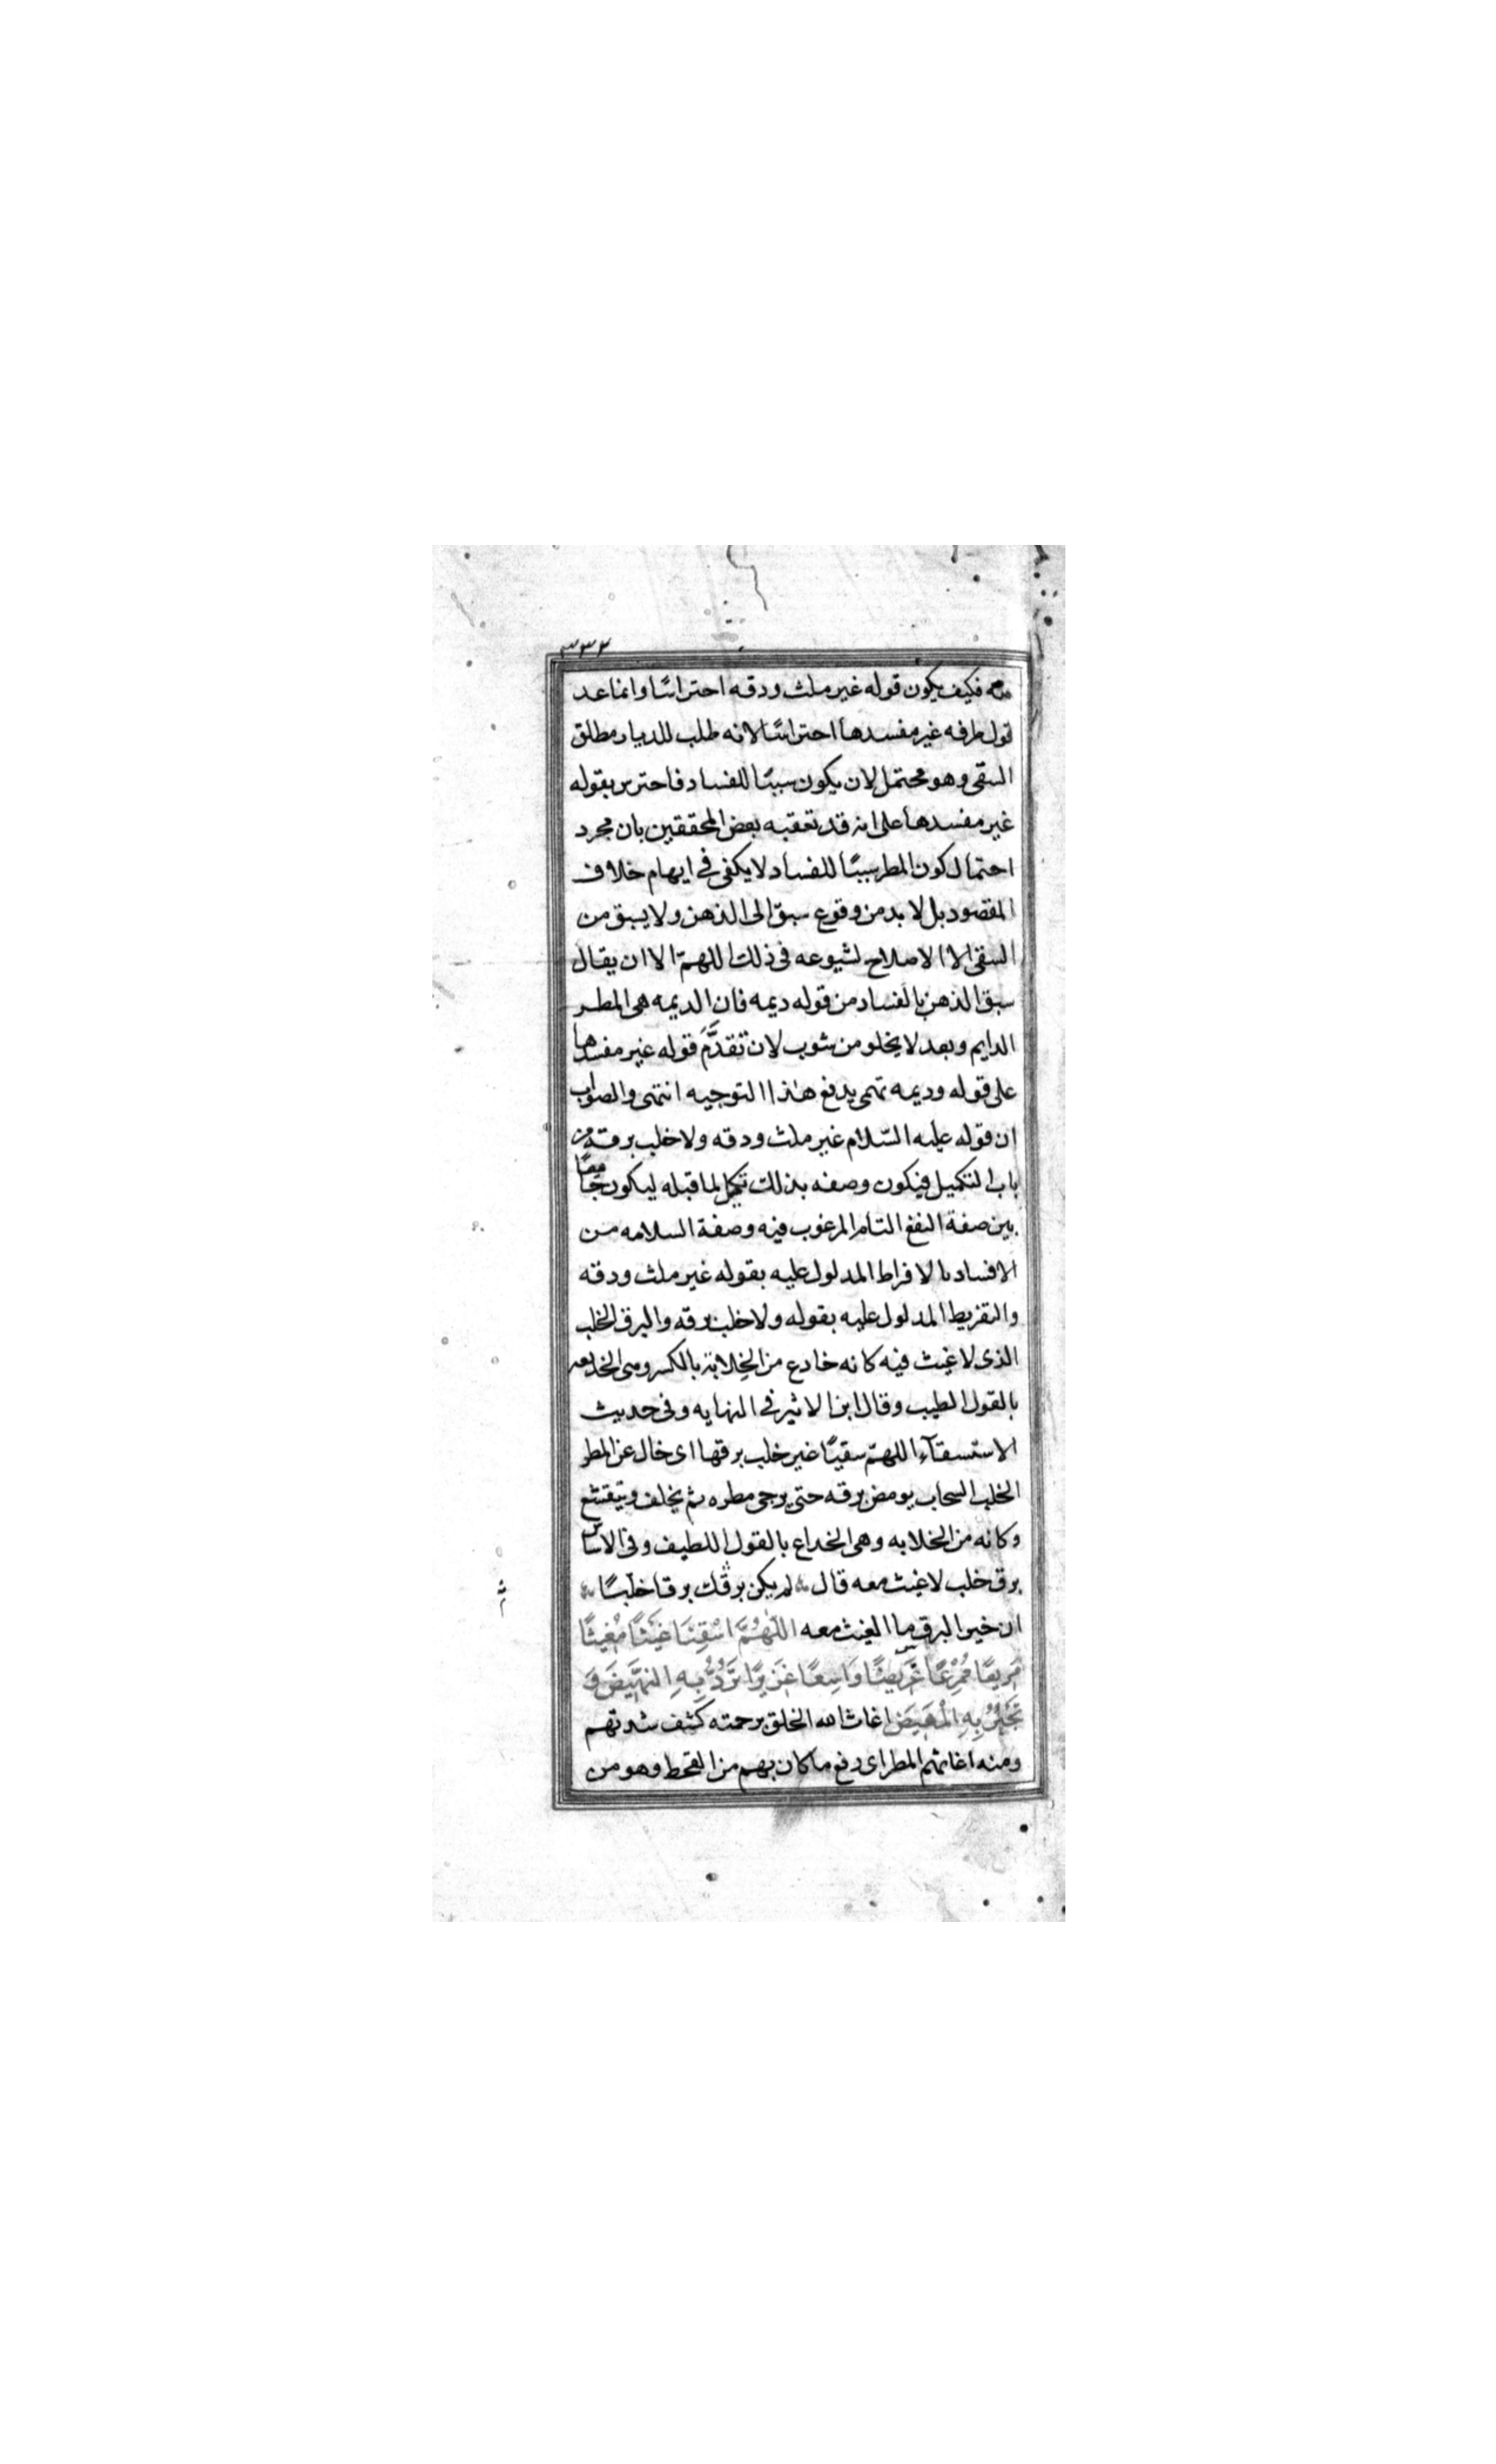 ٣٣٢
معه فكيف يكون قوله غير ملث ودقه احتراسًا وانما عد
قول طرفه غير مفسدها احتراسًا لانه طلب للديار مطلق
السقى وهو محتمل لان يكون سببًا للفساد فاحترس بقوله
غير مفسدها على انه قد تعقبه بعض المحققين بان مجرد
احتمال كون المطر سببًا للفساد لا يكفى فى ايهام خلاف
المقصود بل لا بد من وقوع سبق الى الذهن ولا يسبق من
السقى الا الاصلاح لشيوعه فى ذلك اللهمّ الا ان يقال
سبق الذهن بالفساد من قوله ديمه فان الديمه هى المطر
الدايم وبعد لا يخلو من شوب لان تقدَّمَ قوله غير مفسدها
على قوله وديمه تهمى يدفع هذا التوجيه انتهى والصواب
ان قوله عليه السّلام غير ملث ودقه ولا خلب برقه من
باب التكميل فيكون وصفه بذلك تكميل لما قبله ليكون جامعًا
بين صفة النفع التام المرغوب فيه وصفة السلامه من
الافساد بالافراط المدلول عليه بقوله غير ملث ودقه
والتفريط المدلول عليه بقوله ولا خلب برقه والبرق الخلب
الذى لا غيث فيه كانه خادع من الخِلابة بالكسر وهى الخديعه
بالقول الطيب وقال ابن الاثير فى النهايه وفى حديث
الاستسقآء اللهمّ سقيًا غير خلب برقها اى خال عن المطر
الخلب السحاب يومض برقه حتى يرجى مطره ثم يخلف ويتقشع
وكانه من الخلابه وهى الخداع بالقول اللطيف وفى الاساس
برق خلب لا غيث معه قال لم يكن برقك برقا خلّبًا
ان خير البرق ما الغيث معه اللّٰهُمَّ اسْقِنَا غَيْثًا مُغِيثًا
مَرِيعًا مُمْرِعًا عَرِيضًا وَاسِعًا غَزِيرًا تَرُدُّ بِهِ النَّهِيضَ وَ
تَجْبُرُ بِهِ الْمَهِيضَ اغاث الله الخلق برحمته كشف شدتهم
ومنه اغاثهم المطر اى رفع ما كان بهم من القحط وهو من